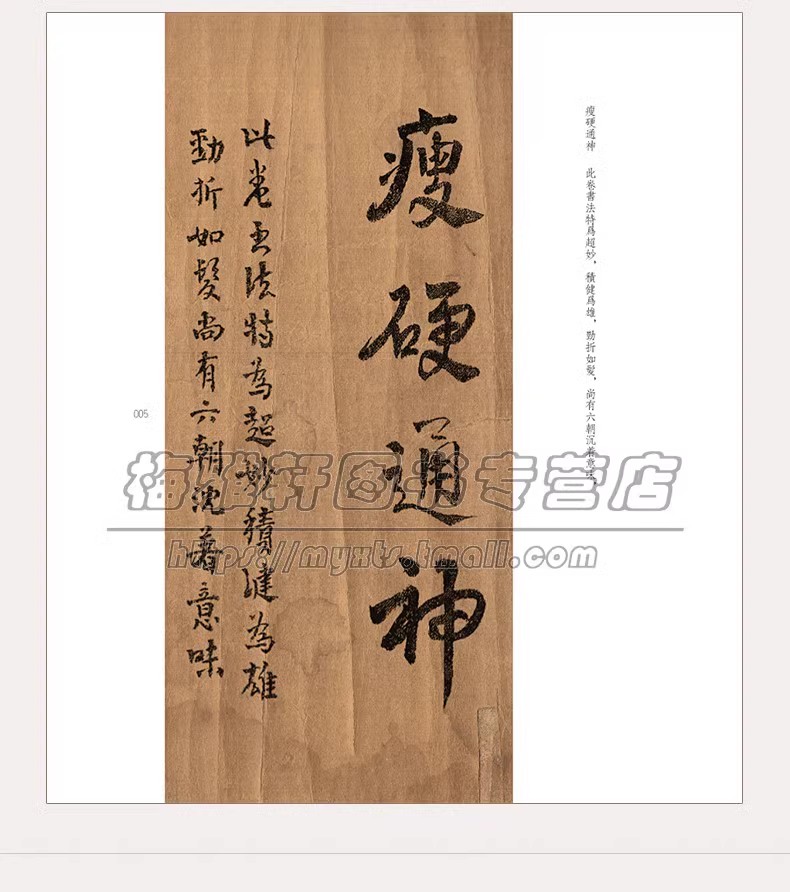 瘦硬通神　此卷書法特爲超妙，積健爲雄，勁折如髮，尚有六朝沉着意味。
瘦硬通神
此卷書法特為超妙積健為雄
勁折如髮尚有六朝沈著意味
005
梅雅轩图书专营店
https://myxts.tmall.com